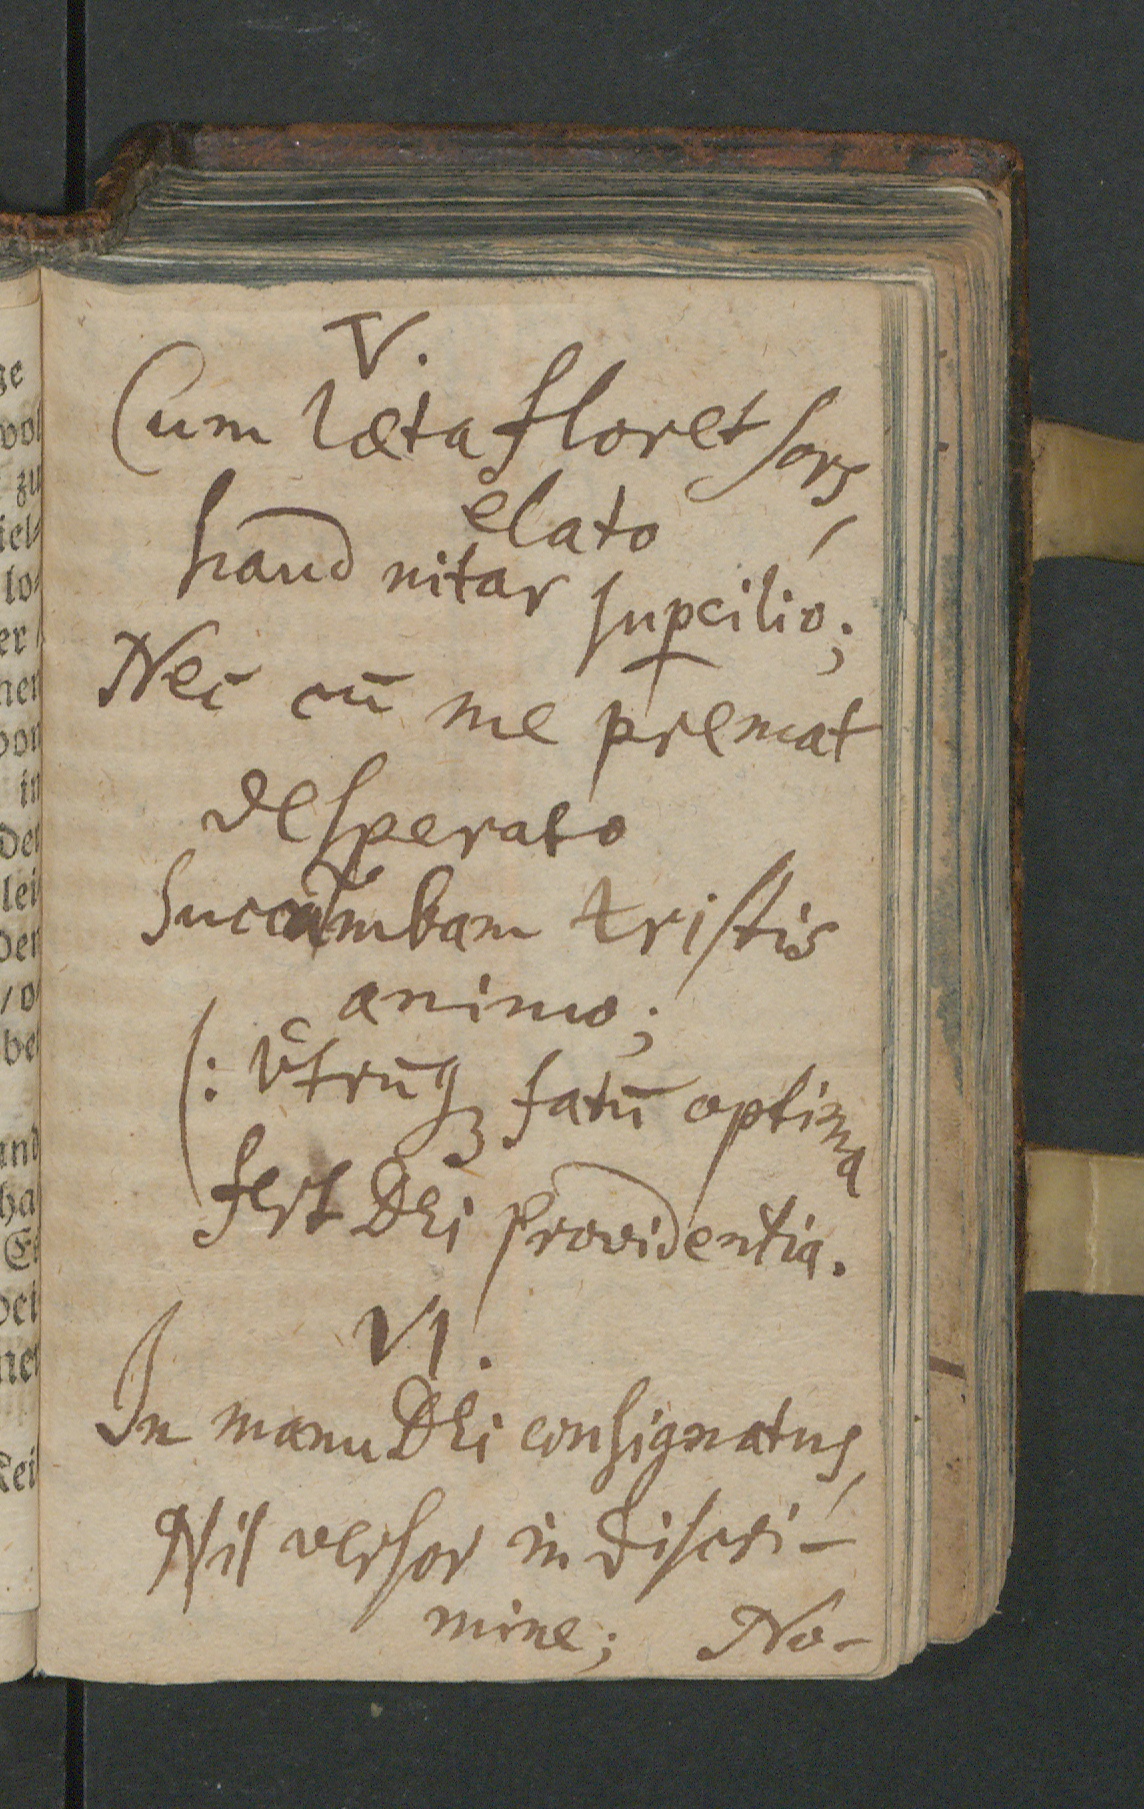 ge
vol
zu
iel⸗
lo⸗
er
ner
von
in
der
lei
der
be
and
ha
nei
V.
Cum læta floret sors,
elato
haud nitar sup̱cilio;
Nec cū me premat
desperato
Succumbam tristis
animo;
(: Utrūqꝫ fatū optima
fert Dei Providentia.
VI.
In manu Dei consignatus,
Nil versor in discri-
mine; No-